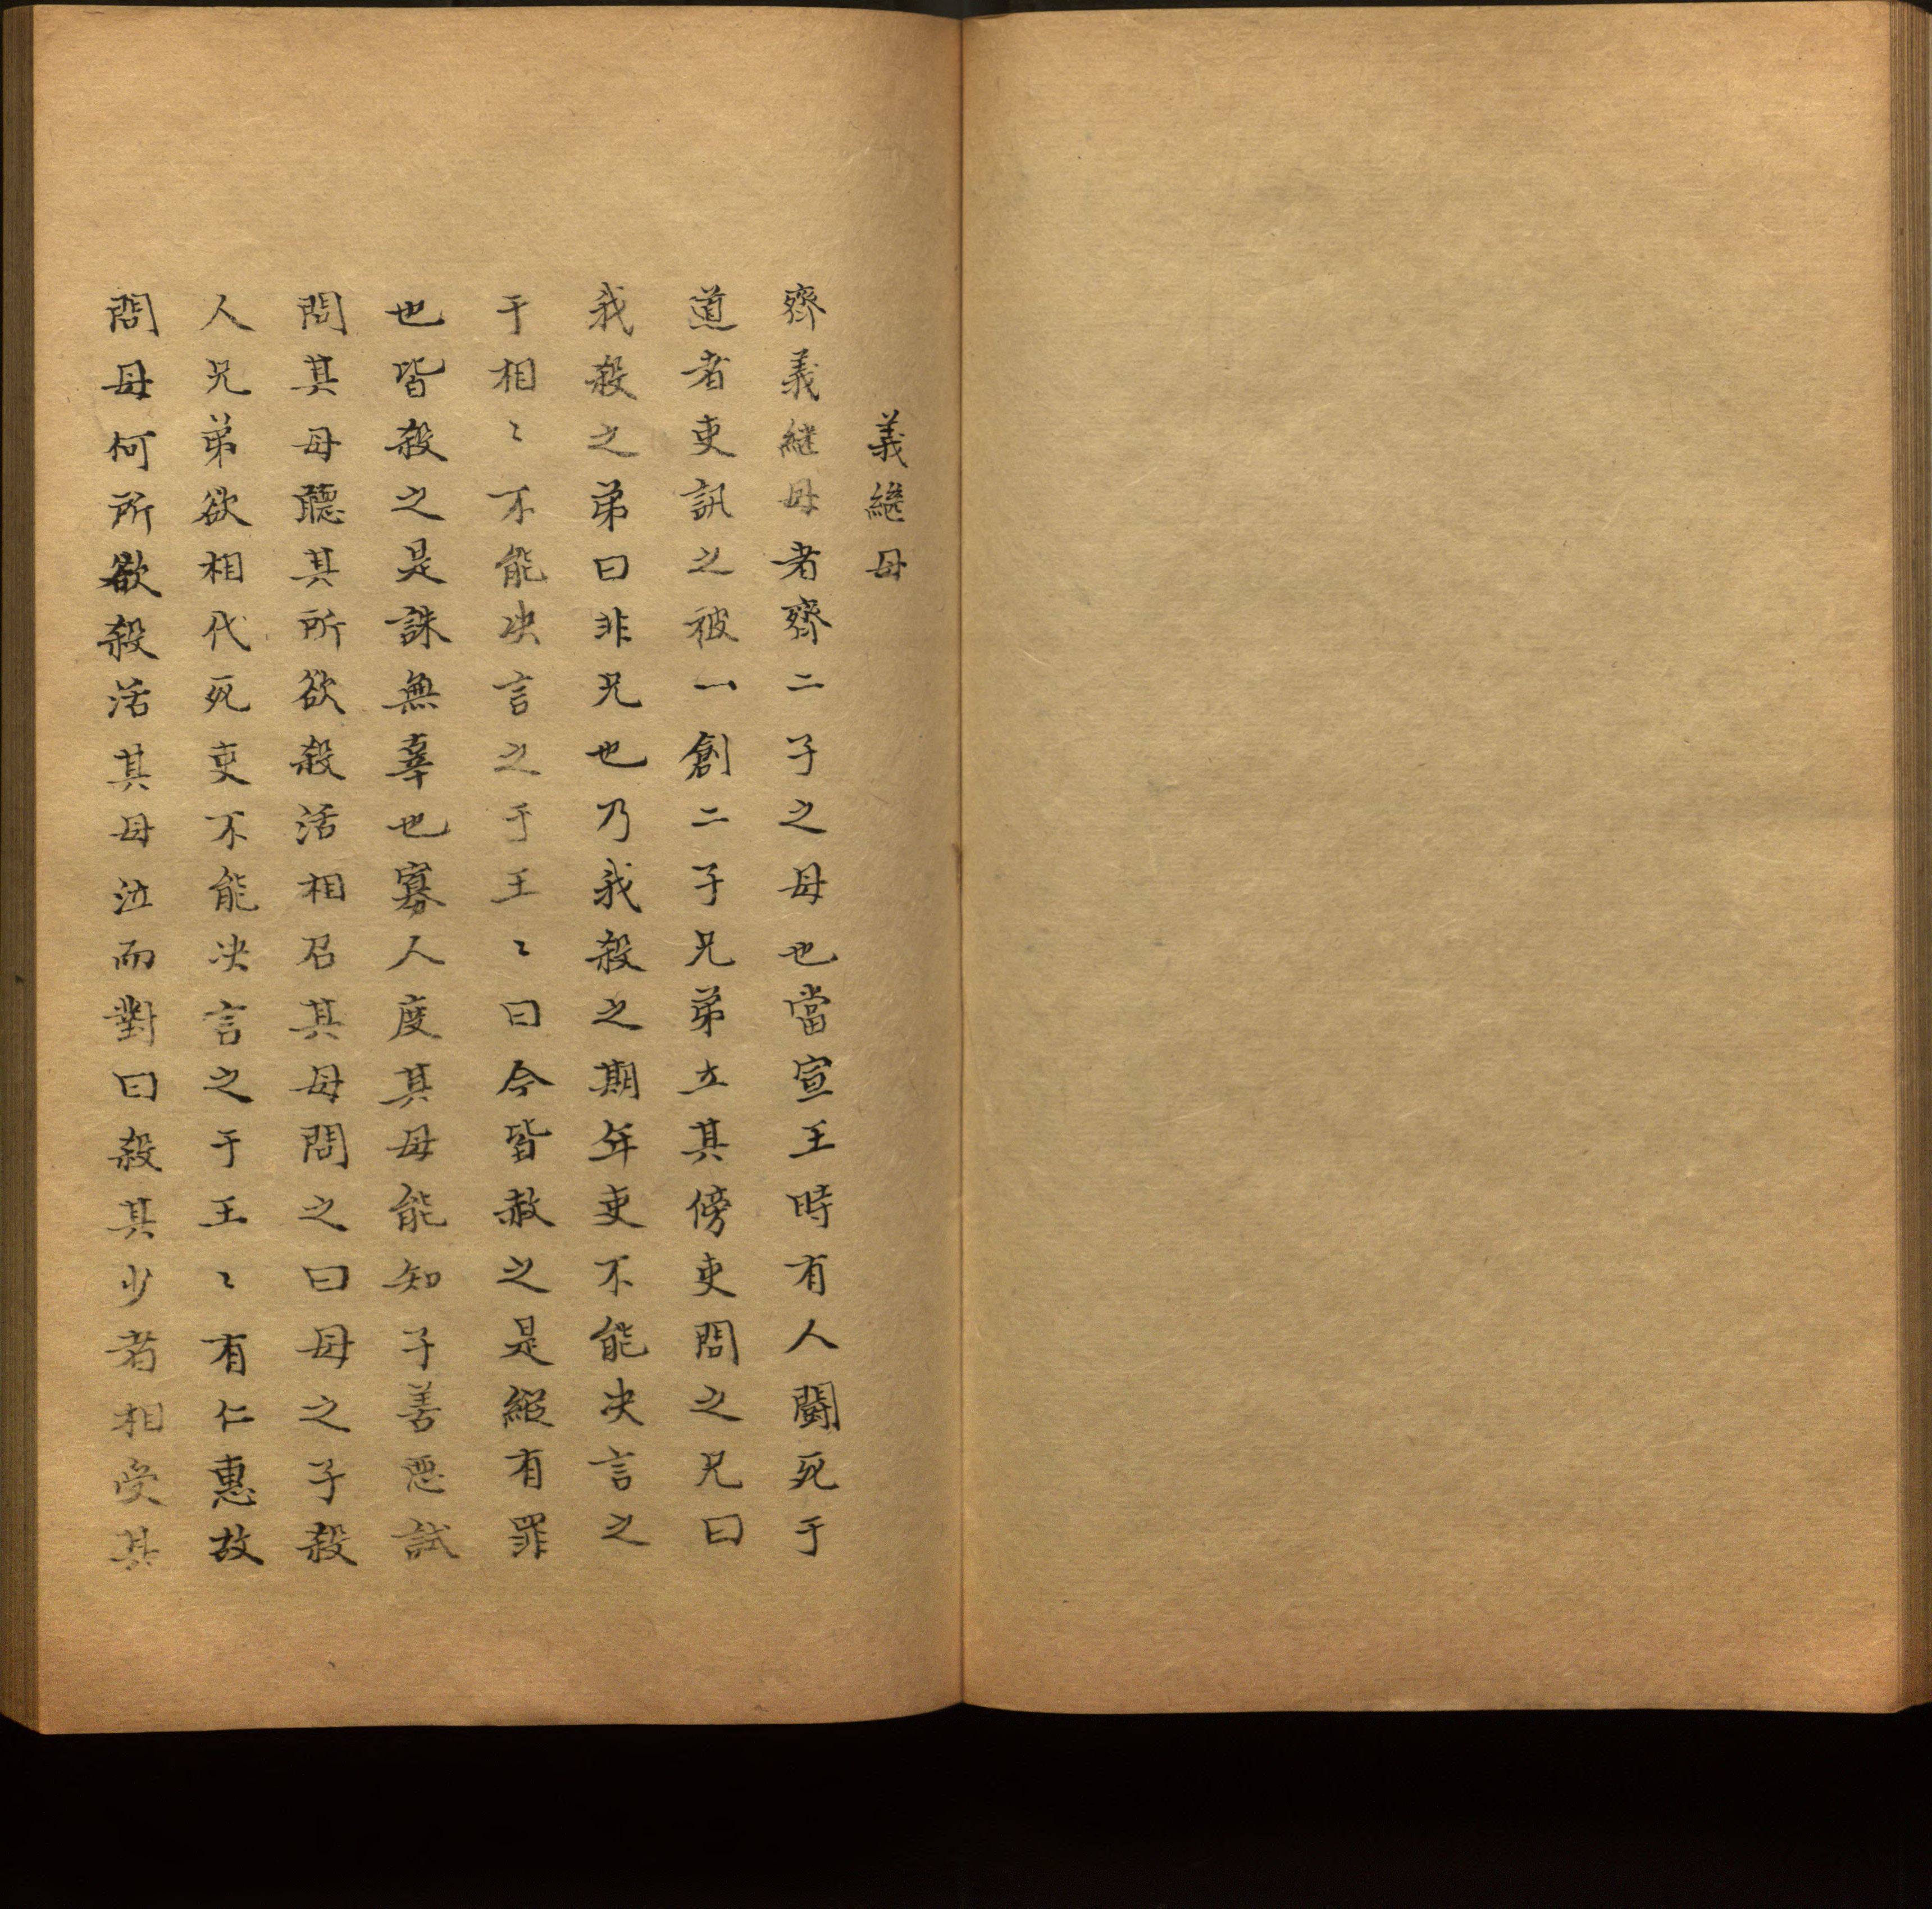 義繼母
齊義繼母者齊二子之母也當宣王時有人鬬死于
道者吏訊之被一創二子兄弟立其傍吏問之兄曰
我殺之弟曰非兄也乃我殺之期年吏不能决言之
于相〻不能决言之于王〻曰今皆赦之是縱有罪
也皆殺之是誅無辜也寡人度其母能知子善惡試
問其母聽其所欲殺活相召其母問之曰母之子殺
人兄弟欲相代死吏不能决言之于王〻有仁惠故
問母何所欲殺活其母泣而對曰殺其少者相受其